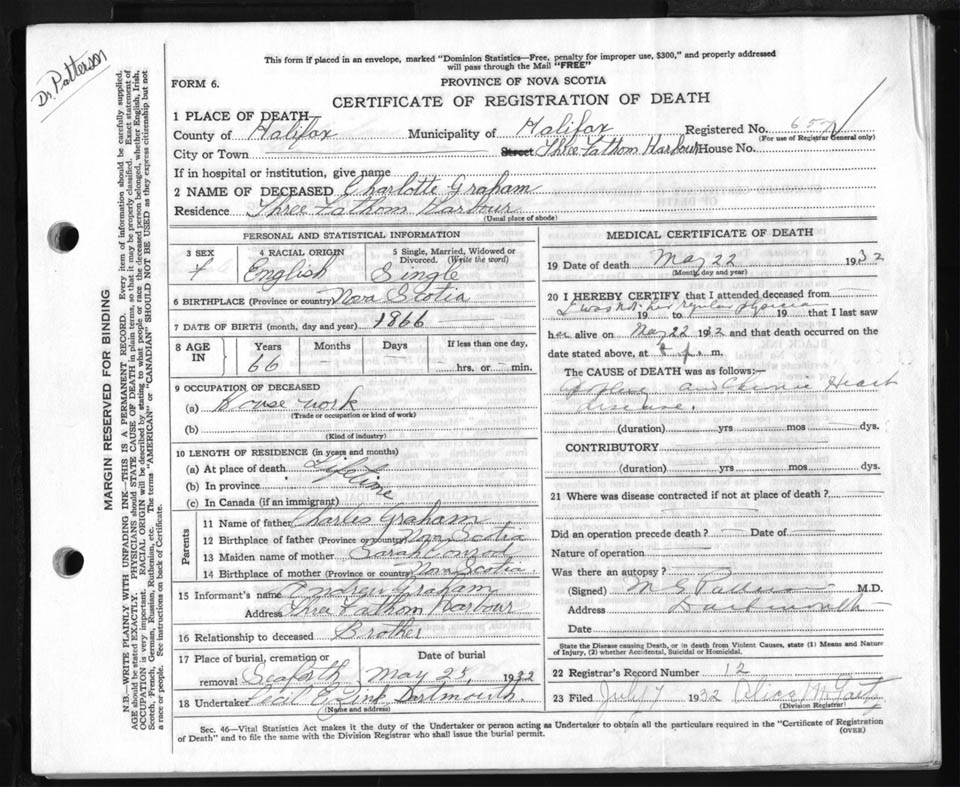 Dr. Patterson
This form if placed in an envelope, marked "Dominion Statistics—Free, penalty for improper use, $300," and properly addressed
will pass through the Mail "FREE"
FORM 6.
PROVINCE OF NOVA SCOTIA
CERTIFICATE OF REGISTRATION OF DEATH
1 PLACE OF DEATH
County of Halifax Municipality of Halifax Registered No.
(For use of Registrar General only)
City or Town Street Three Fathom Harbour House No.
If in hospital or institution, give name
2 NAME OF DECEASED Charlotte Graham
Residence Three Fathom Harbour
(Usual place of abode)
PERSONAL AND STATISTICAL INFORMATION
3 SEX
4 RACIAL ORIGIN
5 Single, Married, Widowed or
Divorced. (Write the word)
f English Single
6 BIRTHPLACE (Province or country) Nova Scotia
7 DATE OF BIRTH (month, day and year) 1866
8 AGE IN
Years Months Days If less than one day,
66 — — hrs. or min.
9 OCCUPATION OF DECEASED
(a) House work
(Trade or occupation or kind of work)
(b)
(Kind of industry)
10 LENGTH OF RESIDENCE (in years and months)
(a) At place of death Life
(b) In province time
(c) In Canada (if an immigrant)
Parents
11 Name of father Charles Graham
12 Birthplace of father (Province or country) Nova Scotia
13 Maiden name of mother Sarah Conrod
14 Birthplace of mother (Province or country) Nova Scotia
15 Informant's name George Graham
Address Three Fathom Harbour
16 Relationship to deceased Brother
17 Place of burial, cremation or Date of burial
removal Seaforth May 25, 1932
18 Undertaker Cecil E. Zink Dartmouth.
(Name and address)
MEDICAL CERTIFICATE OF DEATH
19 Date of death May 22 1932
(Month, day and year)
20 I HEREBY CERTIFY that I attended deceased from
I was not her regular physician
19 to 19 that I last saw
her alive on May 22 1932 and that death occurred on the
date stated above, at p. m.
The CAUSE of DEATH was as follows:—
and Chronic Heart
disease.
(duration) yrs mos dys.
CONTRIBUTORY
(duration) yrs mos dys.
21 Where was disease contracted if not at place of death?
Did an operation precede death? — Date of
Nature of operation
Was there an autopsy?
(Signed) M.D.
Address Dartmouth
Date
State the Disease causing Death, or in death from Violent Causes, state (1) Means and Nature
of Injury, (2) whether Accidental, Suicidal or Homicidal.
22 Registrar's Record Number 12
23 Filed July 7 1932 Alice
(Division Registrar)
Sec. 46—Vital Statistics Act makes it the duty of the Undertaker or person acting as Undertaker to obtain all the particulars required in the "Certificate of Registration
of Death" and to file the same with the Division Registrar who shall issue the burial permit.
(OVER)
MARGIN RESERVED FOR BINDING
N.B.—WRITE PLAINLY WITH UNFADING INK—THIS IS A PERMANENT RECORD. Every item of information should be carefully supplied.
AGE should be stated EXACTLY. PHYSICIANS should STATE CAUSE OF DEATH in plain terms, so that it may be properly classified. Exact statement of
OCCUPATION is very important. RACIAL ORIGIN will be described by stating to what people or race the deceased person belonged, whether English, Irish,
Scotch, French, German, Russian, Ruthenian, etc. The terms "AMERICAN" or "CANADIAN" SHOULD NOT BE USED as they express citizenship but not
a race or people. See instructions on back of Certificate.